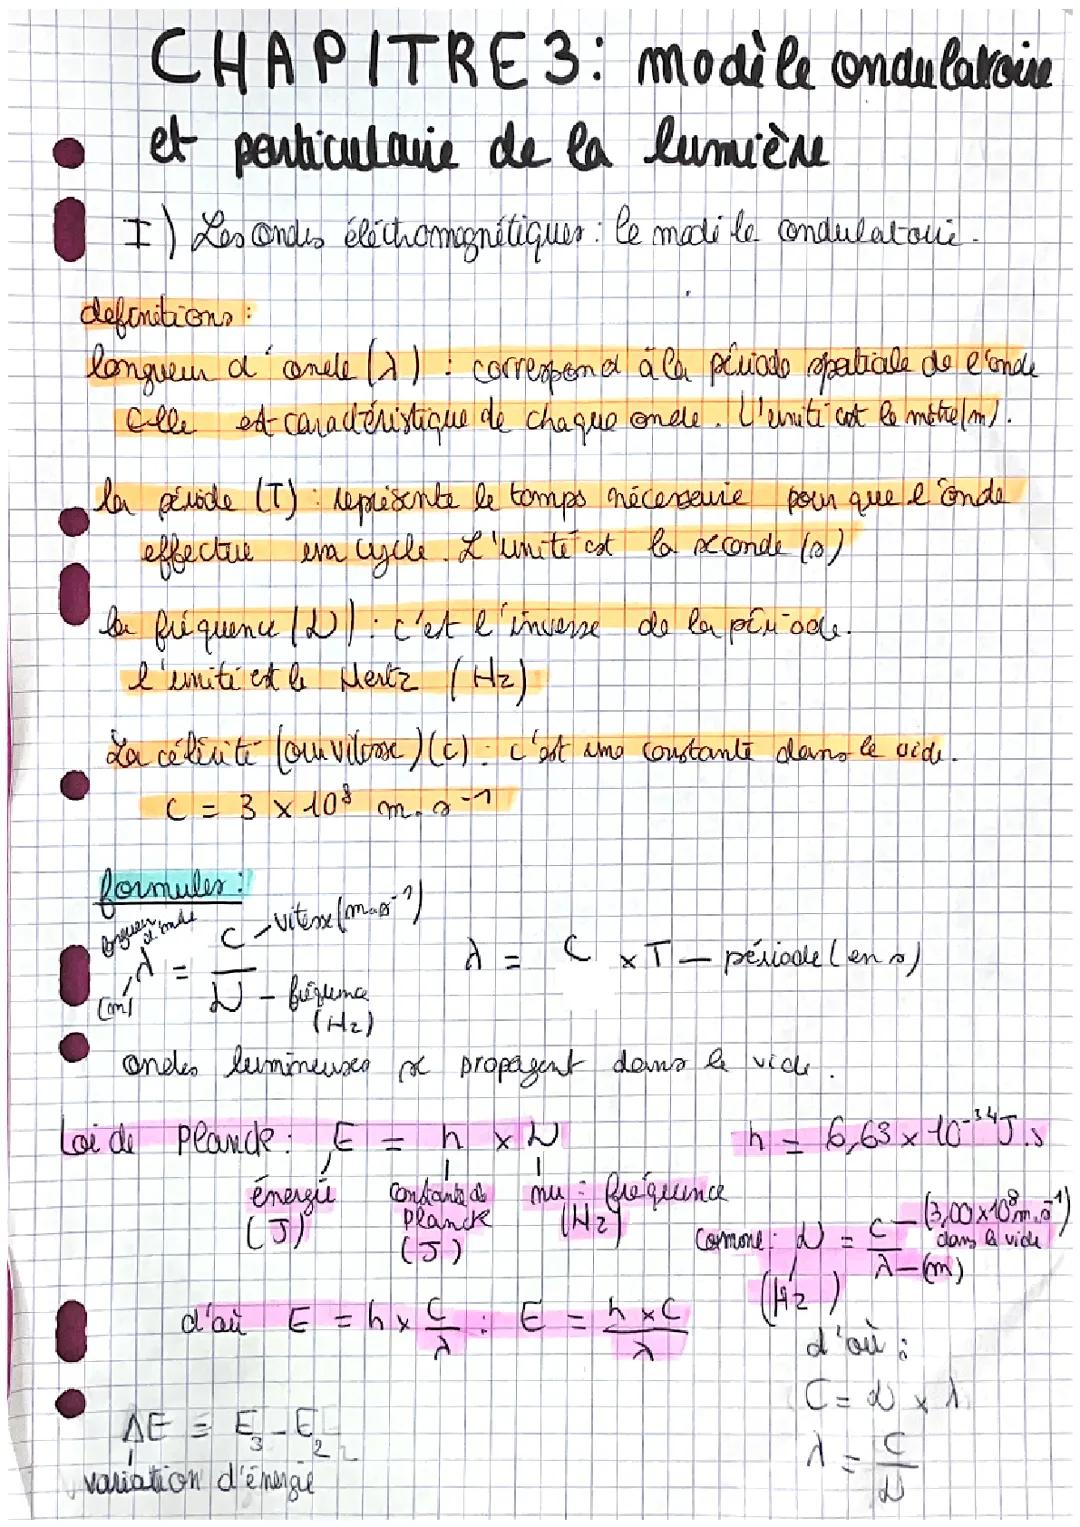 CHAPITRE 3: modèle ondulatoire
et particulaire de la lumière
I) Les ondes éléctromagnétiques : le modèle ondulatoire.
definitions :
longueur d'onde (λ) : correspond à la période spatiale de l'onde
elle est caractéristique de chaque onde. L'unité est le mètre (m).
la période (T) : représente le temps nécessaire pour que l'onde
effectue un cycle. L'unité est la seconde (s)
la fréquence (ν) : c'est l'inverse de la période.
l'unité est le Hertz (Hz)
La célérité (ou vitesse) (c) : c'est une constante dans le vide.
C = 3 × 10⁸ m.s⁻¹
formules :
longueur d'onde λ (m) = C – vitesse (m.s⁻¹) / ν – fréquence (Hz)
λ = C × T – période (en s)
ondes lumineuses se propagent dans le vide.
Loi de Planck : E = h × ν
h = 6,63 × 10⁻³⁴ J.s
énergie (J)
constante de Planck (J)
nu : fréquence (Hz)
Comme : ν (Hz) = C – (3,00×10⁸ m.s⁻¹) dans le vide / λ – (m)
d'où E = h × C/λ : E = h × C / λ
d'où :
C = ν × λ
λ = C/ν
ΔE = E₃ - E₂
variation d'énergie